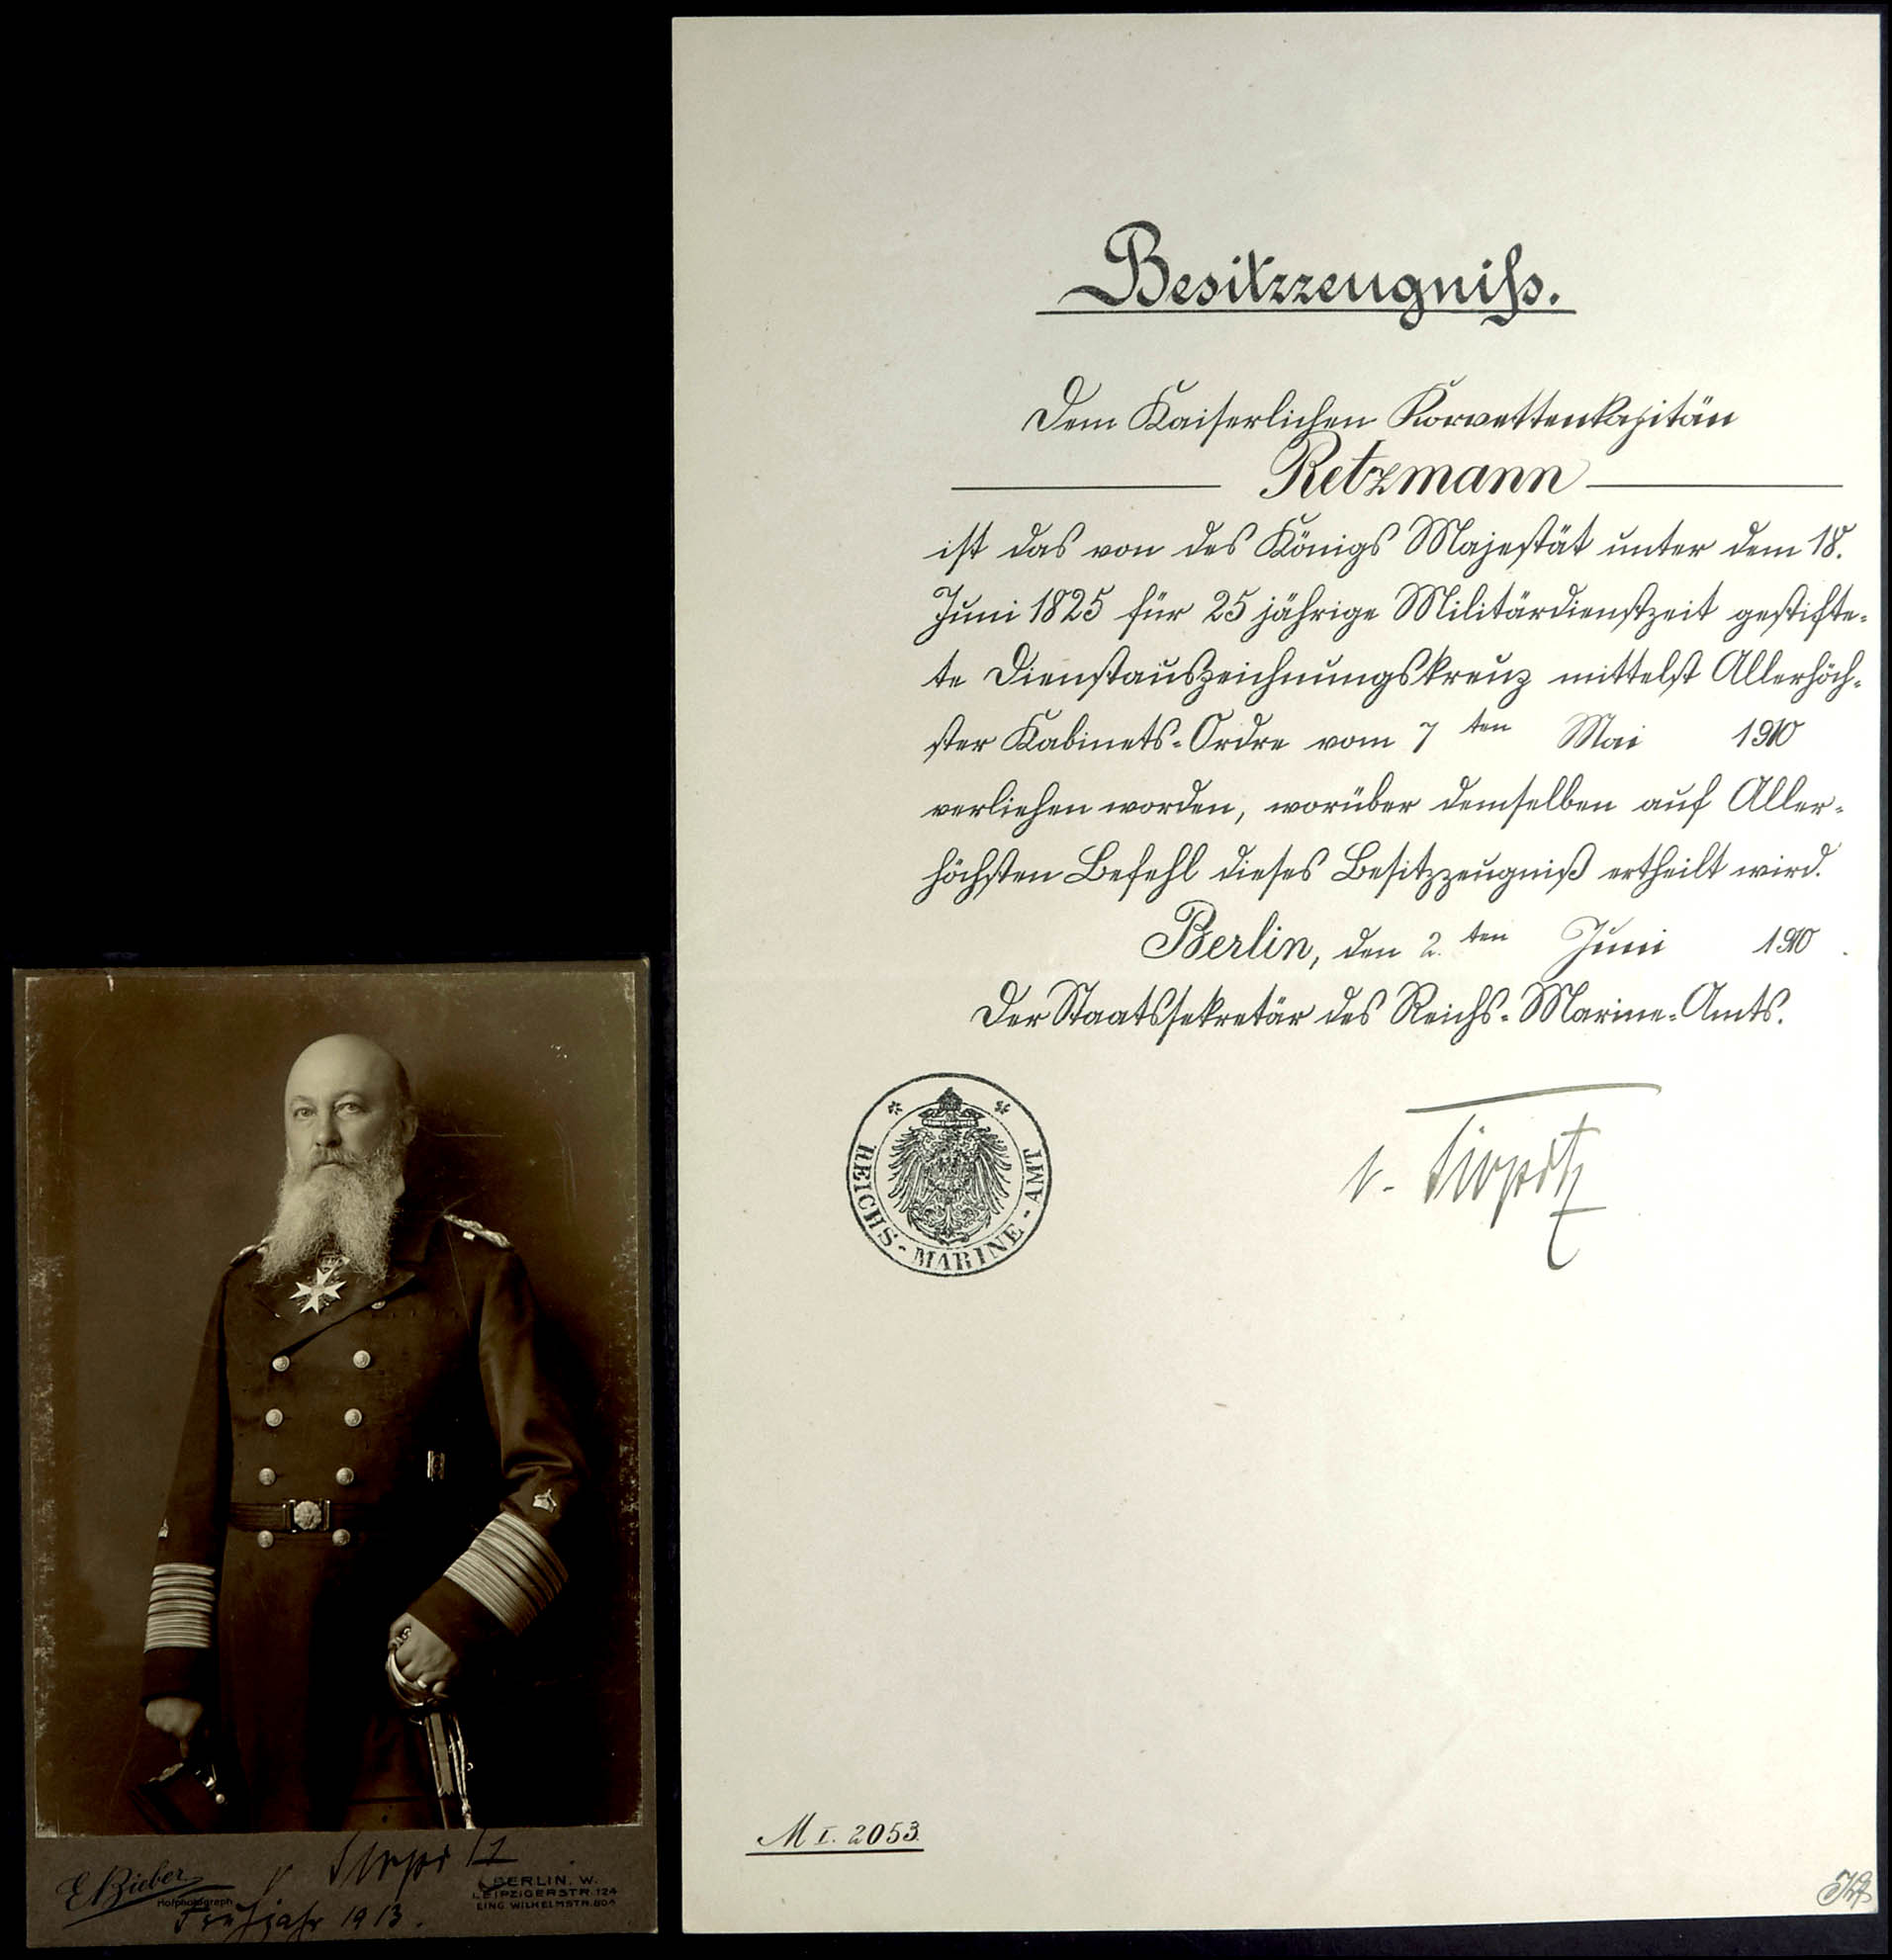 Besitzzeugniß.
Dem Kaiserlichen Korvettenkapitän
Retzmann
ist das von des Königs Majestät unter dem 18.
Juni 1825 für 25 jährige Militärdienstzeit gestifte-
te Dienstauszeichnungskreuz mittelst Allerhöch-
ster Kabinets-Ordre vom 7 ten Mai 1910
verliehen worden, worüber demselben auf Aller-
höchsten Befehl dieses Besitzzeugniß ertheilt wird.
Berlin, den 2. ten Juni 1910.
Der Staatssekretär des Reichs-Marine-Amts.
REICHS-MARINE-AMT
v. Tirpitz
M I. 2053.
v Tirpitz
Frühjahr 1913.
E. Bieber
Hofphotograph
BERLIN. W.
LEIPZIGERSTR. 124
EING. WILHELMSTR. 80A